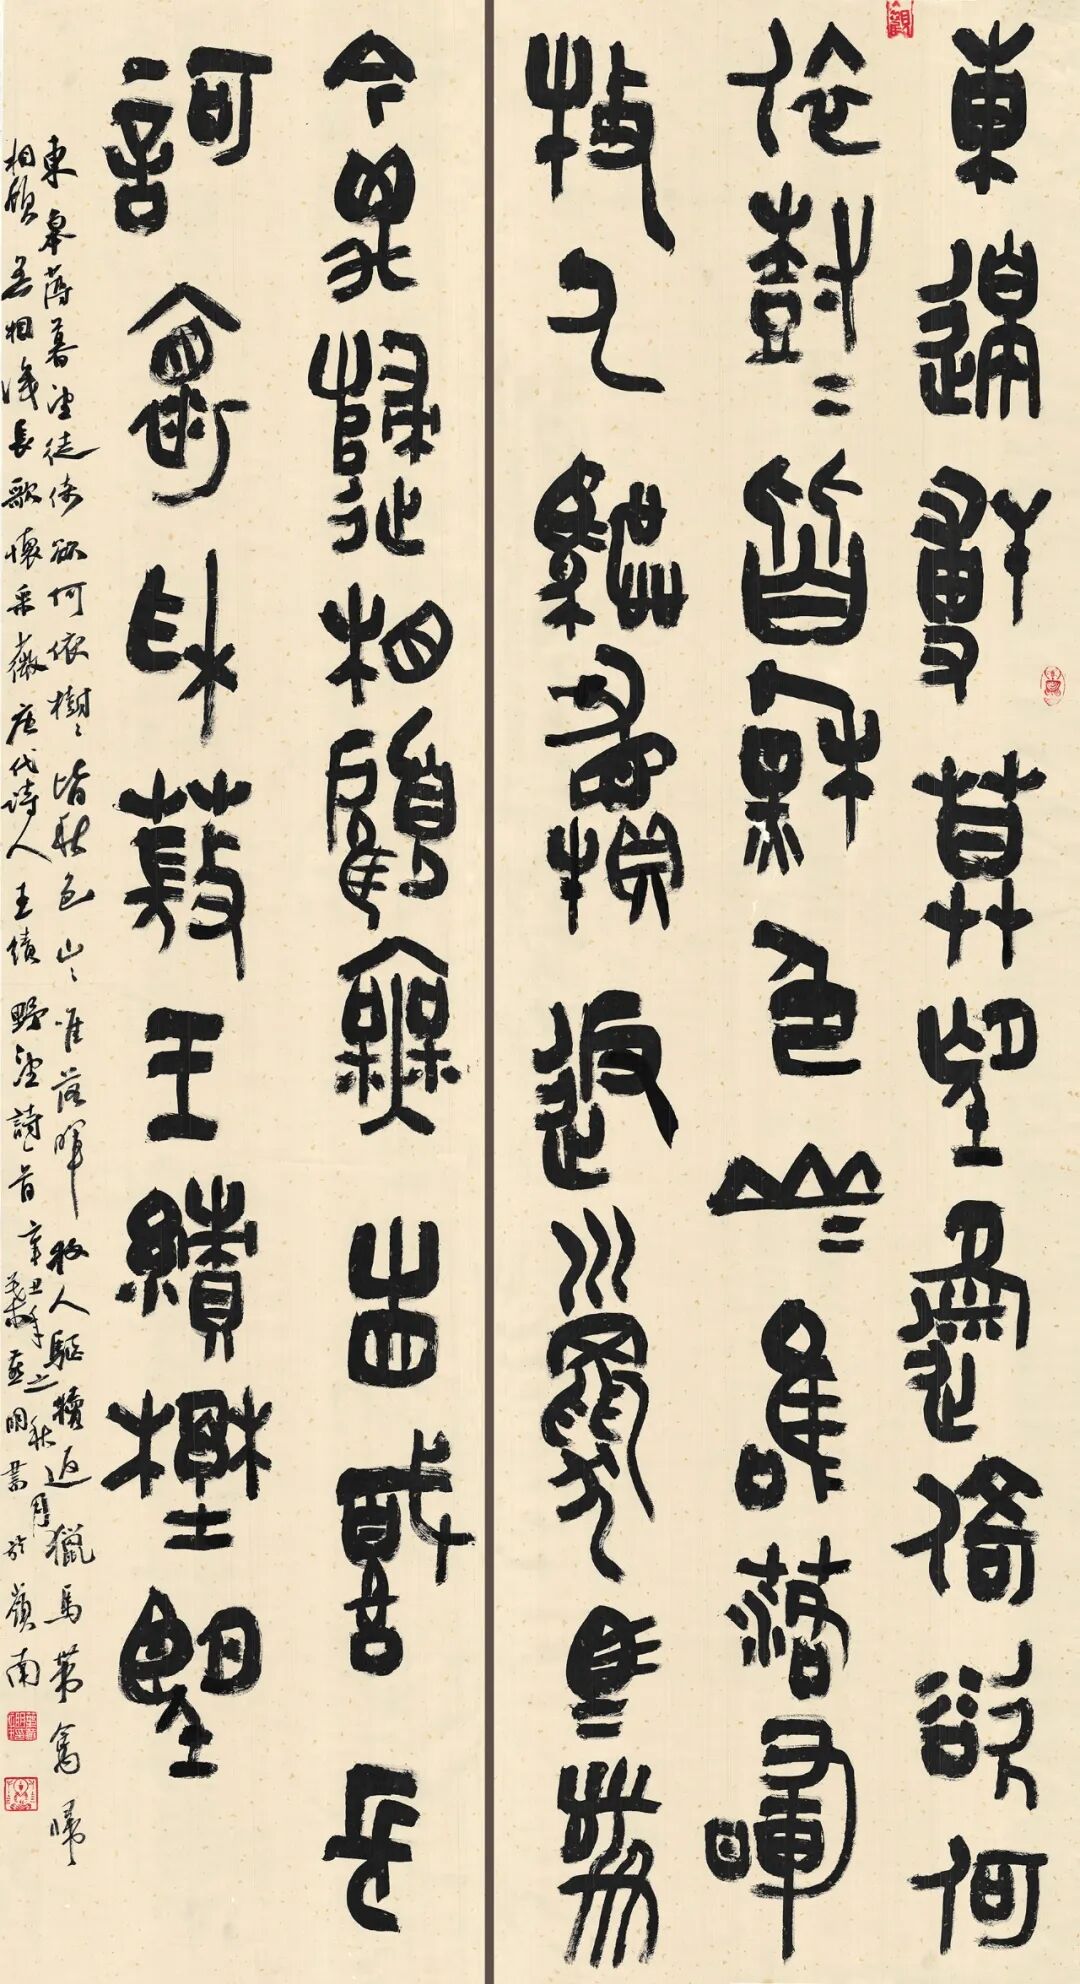 東皋薄暮望徙倚欲何
依樹〻皆秋色山〻唯落暉
牧人驅犢返獵馬〻帶
禽歸相顧無相識長
歌懷采薇王績野望
東皋薄暮望徙倚欲何依樹〻皆秋色山〻唯落暉牧人驅犢返獵馬帶禽歸
相顧無相識長歌懷采薇唐代詩人王績野望詩一首辛丑年之秋月葉明書於嶺南